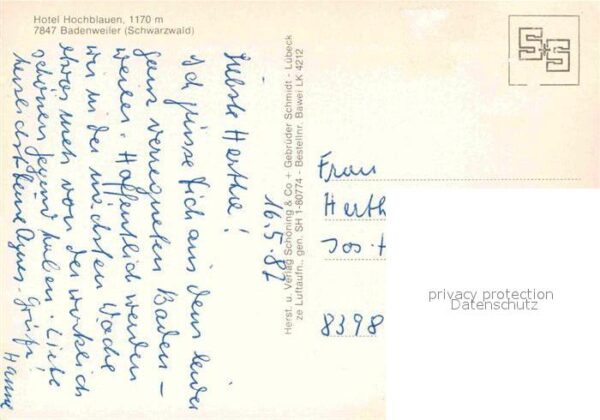 Hotel Hochblauen, 1170 m
7847 Badenweiler (Schwarzwald)
16.5.82
Liebste Hertha!
Ich grüsse Dich aus dem leider
ganz verregneten Baden-
weiler. Hoffentlich werden
wir in der nächsten Woche
etwas mehr von der wirklich
schönen Gegend haben. Liebe
Agnes-Grüße!
Hanne
Herst. u. Verlag Schöning & Co + Gebrüder Schmidt - Lübeck
ze Luftaufn., gen. SH 1-80774 - Bestellnr. Bawei LK 4212
S+S
Frau
Herth
Jos.-
8398
privacy protection
Datenschutz